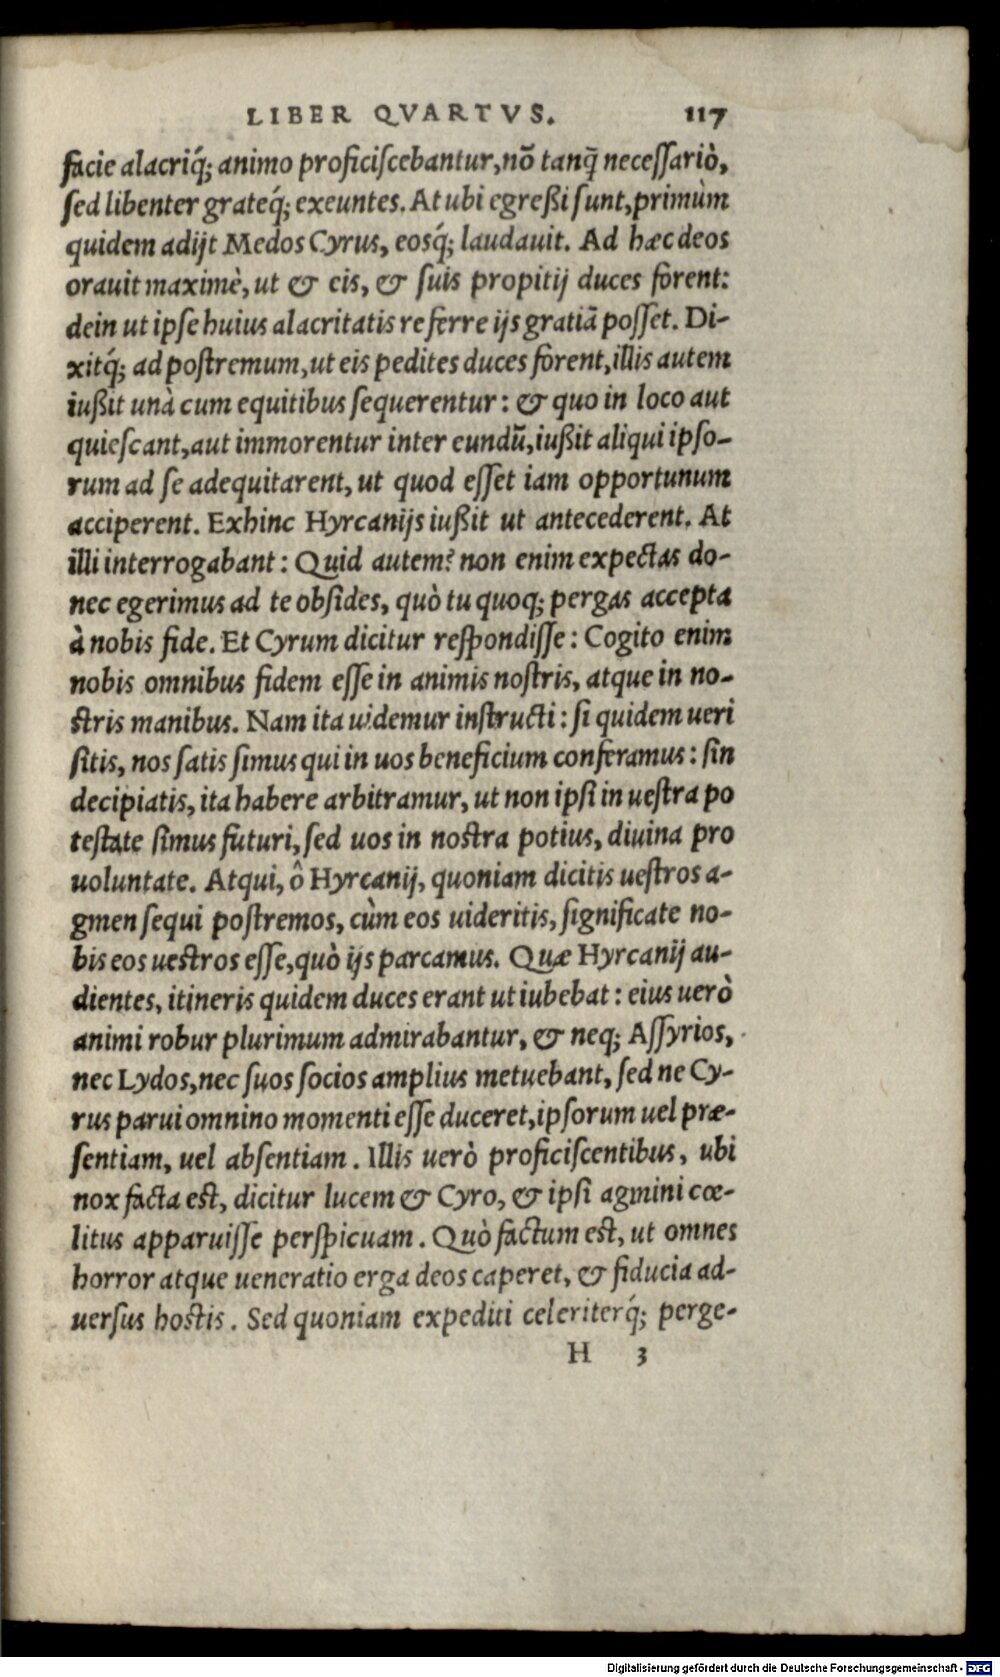 LIBER QVARTVS. 117
facie alacriq́; animo proficiſcebantur, nõ tanq̃ neceſſariò,
ſed libenter grateq́; exeuntes. At ubi egreßi ſunt, primùm
quidem adijt Medos Cyrus, eosq́; laudauit. Ad hæc deos
orauit maximè, ut & eis, & ſuis propitij duces forent:
dein ut ipſe huius alacritatis referre ijs gratiã poſſet. Di-
xitq́; ad poſtremum, ut eis pedites duces forent, illis autem
iußit unà cum equitibus ſequerentur: & quo in loco aut
quieſcant, aut immorentur inter eundũ, iußit aliqui ipſo-
rum ad ſe adequitarent, ut quod eſſet iam opportunum
acciperent. Exhinc Hyrcanijs iußit ut antecederent. At
illi interrogabant: Quid autem? non enim expectas do-
nec egerimus ad te obſides, quò tu quoq; pergas accepta
à nobis fide. Et Cyrum dicitur reſpondiſſe: Cogito enim
nobis omnibus fidem eſſe in animis noſtris, atque in no-
ſtris manibus. Nam ita uidemur inſtructi: ſi quidem ueri
ſitis, nos ſatis ſimus qui in uos beneficium conferamus: ſin
decipiatis, ita habere arbitramur, ut non ipſi in ueſtra po
teſtate ſimus futuri, ſed uos in noſtra potius, diuina pro
uoluntate. Atqui, ô Hyrcanij, quoniam dicitis ueſtros a-
gmen ſequi poſtremos, cùm eos uideritis, ſignificate no-
bis eos ueſtros eſſe, quò ijs parcamus. Quæ Hyrcanij au-
dientes, itineris quidem duces erant ut iubebat: eius uerò
animi robur plurimum admirabantur, & neq; Aſſyrios,
nec Lydos, nec ſuos ſocios amplius metuebant, ſed ne Cy-
rus parui omnino momenti eſſe duceret, ipſorum uel præ-
ſentiam, uel abſentiam. Illis uerò proficiſcentibus, ubi
nox facta eſt, dicitur lucem & Cyro, & ipſi agmini cœ-
litus apparuiſſe perſpicuam. Quò factum eſt, ut omnes
horror atque ueneratio erga deos caperet, & fiducia ad-
uerſus hoſtis. Sed quoniam expediti celeriterq́; perge-
H 3
Digitalisierung gefördert durch die Deutsche Forschungsgemeinschaft - DFG